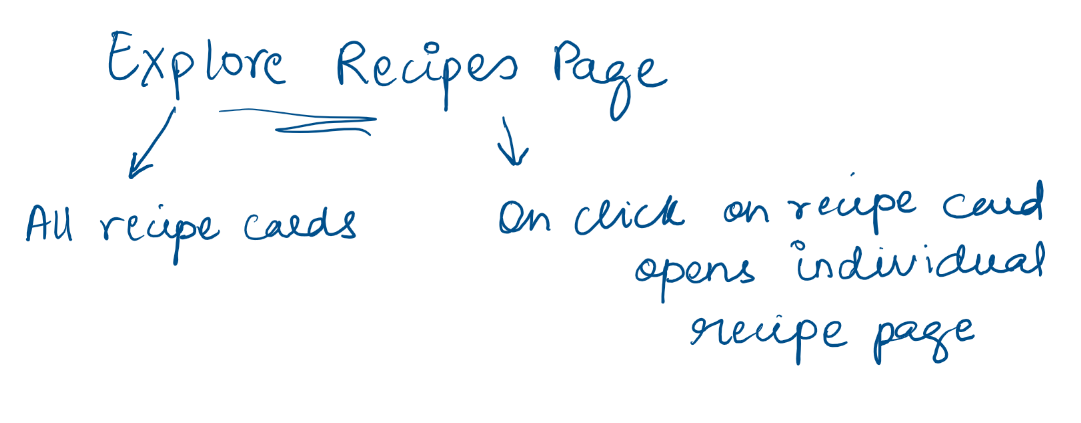 Explore Recipes Page
All recipe cards
On click on recipe card
opens individual
recipe page